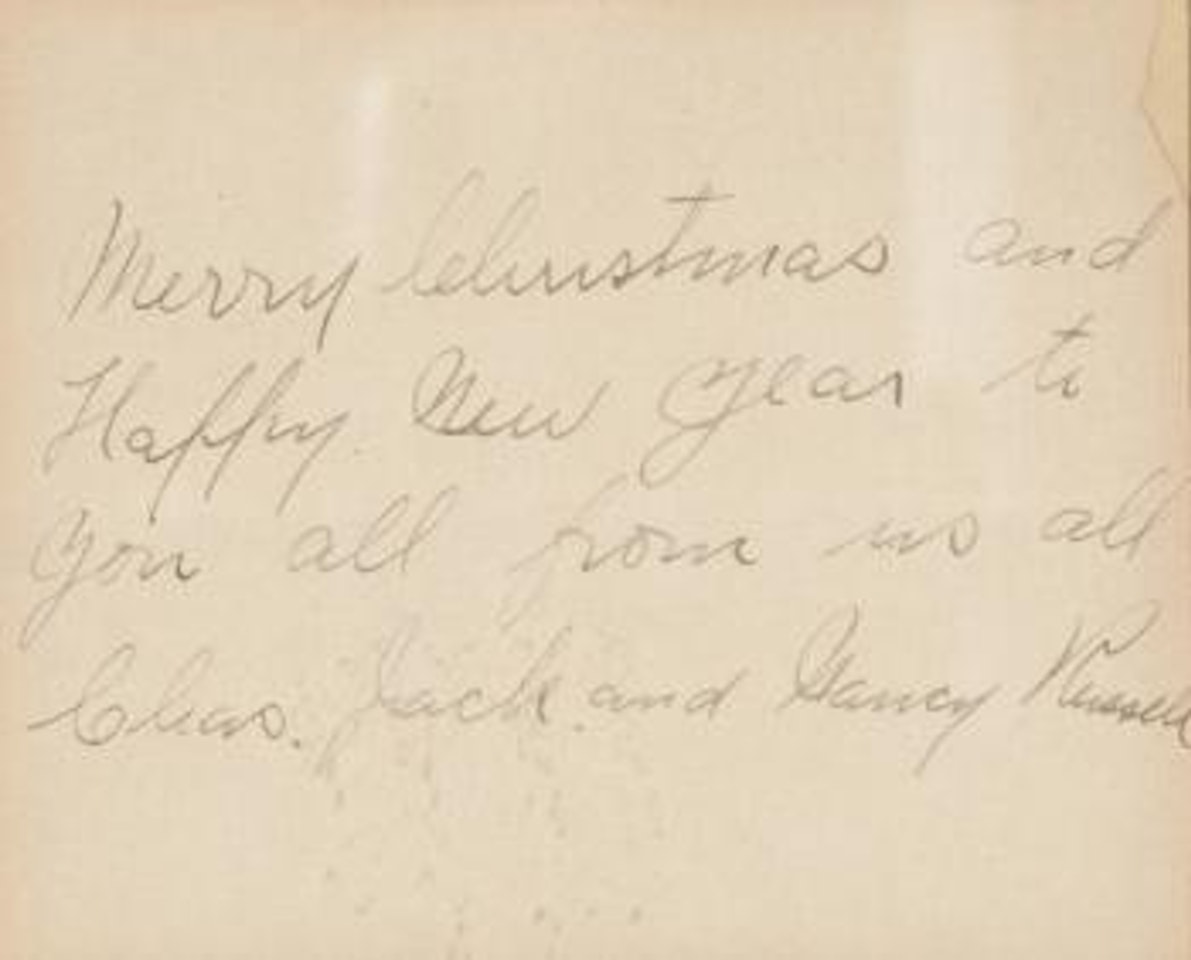 Merry Christmas and
Happy New Year to
you all from us all
Chas. Jack and Nancy Russell